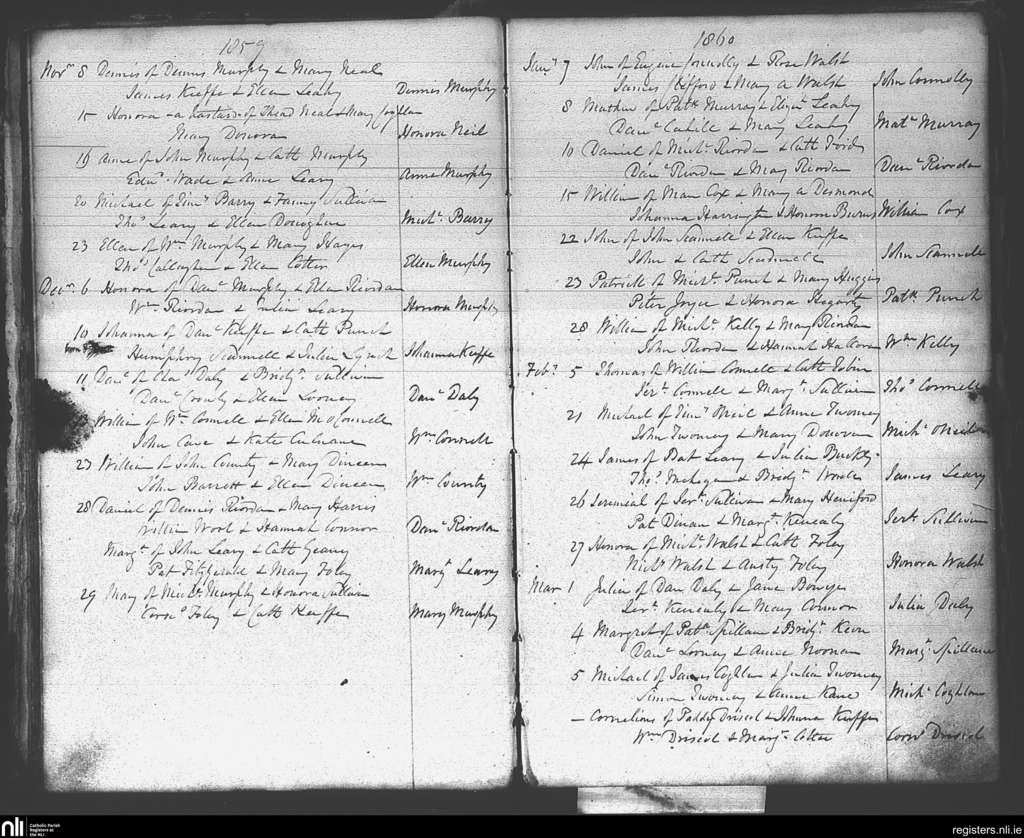 1859
Novr 8 Dennis of Dennis Murphy & Mary Neal
James Keeffe & Ellen Leahy Dennis Murphy
15 Honora - a bastard of Thad Neal & Mary Coghlan
Mary Donovan Honora Neil
19 Anne of John Murphy & Cath Murphy
Edwd Wade & Anne Leary Anne Murphy
20 Michael of Timy Barry & Fanny Sullivan
Thos Leary & Ellen Donoghue Michl Barry
23 Ellen of Wm Murphy & Mary Hayes
Thos Callaghan & Ellen Cotter Ellen Murphy
Decr 6 Honora of Danl Murphy & Ellen Riordan
Wm Riordan & Julia Leary Honora Murphy
10 Johanna of Danl Keeffe & Cath Punch
Humphry Scannell & Julia Lynch Johanna Keeffe
11 Danl of Chas Daly & Bridgt Sullivan
Danl Crowly & Ellen Looney Danl Daly
William of Wm Connell & Ellen McConnell
John Cave & Kate Culnane Wm Connell
23 William of John County & Mary Dineen
John Barrett & Ellen Dineen Wm County
28 Daniel of Dennis Riordan & Mary Harris
William Wool & Hannah Connor Danl Riordan
Margt of John Leary & Cath Geany
Pat Fitzgerald & Mary Foley Margt Leary
29 Mary of Michl Murphy & Honora Sullivan
Foley & Cath Keeffe Mary Murphy
1860
Jany 7 John of Eugene Connolly & Rose Walsh
James & Mary A Walsh John Connolly
8 Mathew of Patk Murray & Elizth Leahy
Danl Cahill & Mary Leahy Matw Murray
10 Daniel of Michl Riordan & Cath Ford
Danl Riordan & Mary Riordan Danl Riordan
15 William of Cox & Mary A Desmond
Johanna Harrington & Honora Burns William Cox
22 John of John Scannell & Ellen Keeffe
John & Cath Scannell John Scannell
23 Patrick of Michl Punch & Mary Huggins
Peter Joyce & Honora Hegarty Patk Punch
28 William of Michl Kelly & Mary Riordan
John Riordan & Hannah Halloran Wm Kelly
Feby 5 Thomas of William Connell & Cath Tobin
Jerh Connell & Margt Sullivan Thos Connell
21 Michael of Timy Oneil & Anne Twomey
John Twomey & Mary Donovan Michl Oneil
24 James of Bat Leary & Julia Buckley
Thos Mehegan & Bridgt James Leary
26 Jeremial of Jerh Sullivan & Mary Heniford
Pat Dinan & Margt Kenealy Jerh Sullivan
27 Honora of Michl Walsh & Cath Foley
Michl Walsh & Austy Foley Honora Walsh
Mar 1 Julia of Dan Daly & Jane Bowyer
Jerh Kenealy & Mary Connor Julia Daly
4 Margret of Patk Spillane & Bridgt Keon
Danl Looney & Anne Noonan Margt Spillane
5 Michael of James Coghlan & Julia Twomey
Simon Twomey & Anne Kane Michl Coghlan
— Cornelious of Paddy Driscol & Johanna Keeffe
Wm Driscol & Margt Cotter Corns Driscol
nli Catholic Parish
Registers at
the NLI
registers.nli.ie